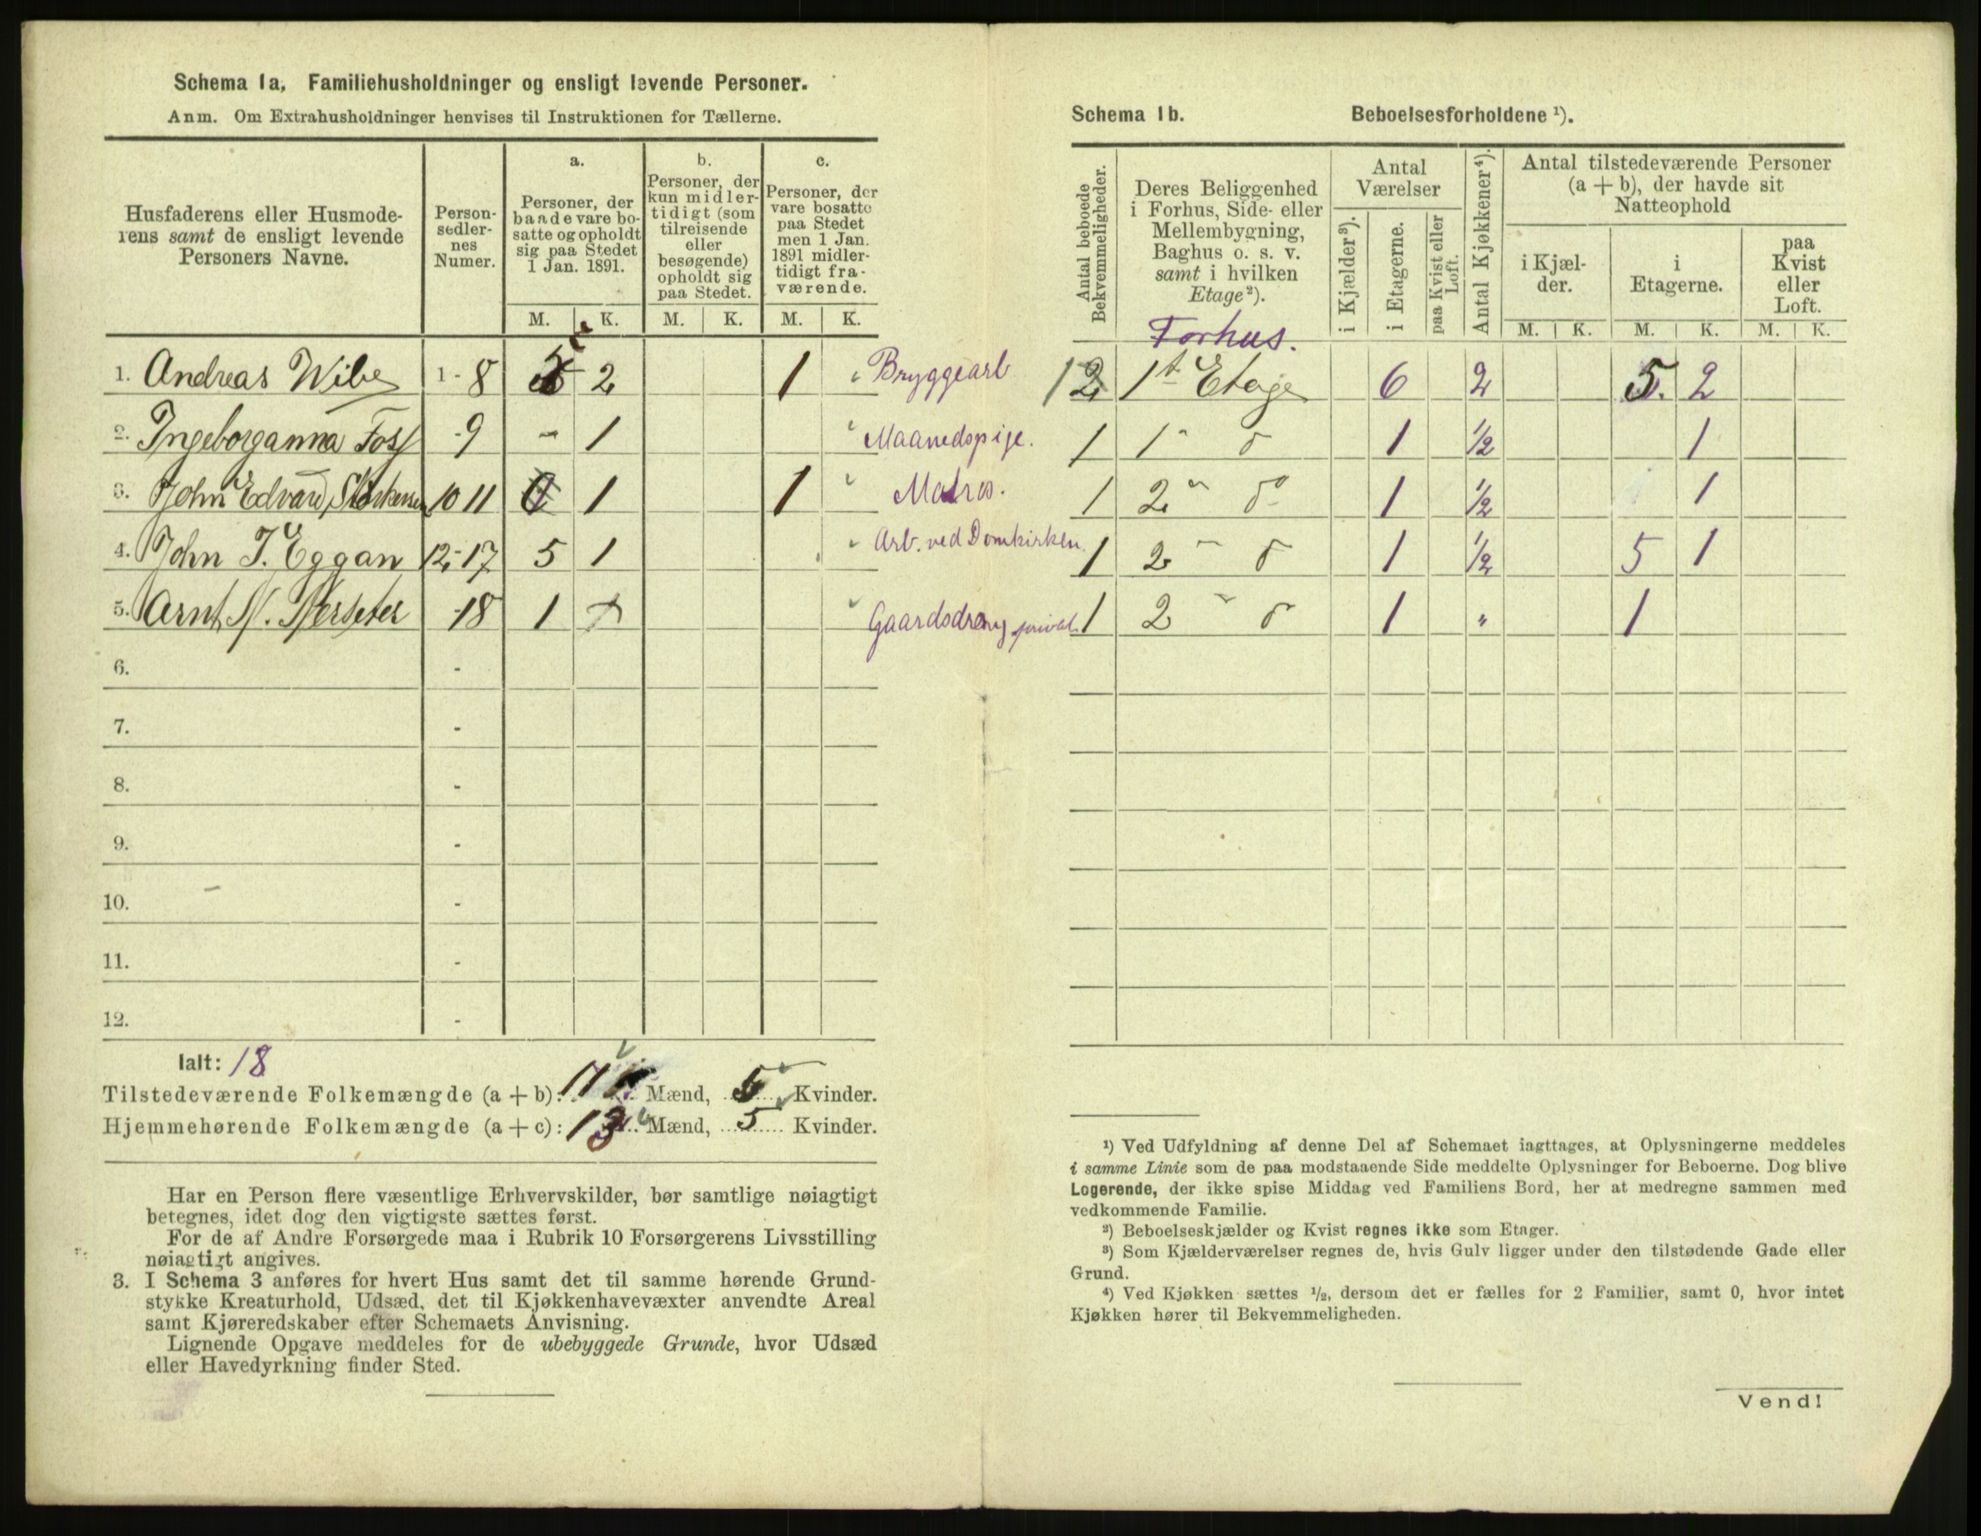 Schema 1a, Familiehusholdninger og ensligt levende Personer.
Anm. Om Extrahusholdninger henvises til Instruktionen for Tællerne.
Husfaderens eller Husmode-
rens samt de ensligt levende
Personers Navne.
Person-
sedler-
nes
Numer.
a.
Personer, der
baade vare bo-
satte og opholdt
sig paa Stedet
1 Jan. 1891.
b.
Personer, der
kun midler-
tidigt (som
tilreisende
eller
besøgende)
opholdt sig
paa Stedet.
c.
Personer, der
vare bosatte
paa Stedet
men 1 Jan.
1891 midler-
tidigt fra-
værende.
M. K. M. K. M. K.
1. Andreas Wibe 1-8 5 2 1 Bryggearb
2. Ingeborganna Foss -9 - 1 Maanedspige.
3. John Edvard Størkersen 10 11 0 1 1 Matros.
4. John J. Eggan 12-17 5 1 Arb. ved Domkirken.
5. Arnt -18 1 Gaardsdreng privat
6. -
7. -
8. -
9. -
10. -
11. -
12. -
Ialt: 18
Tilstedeværende Folkemængde (a + b): 11 Mænd, 5 Kvinder.
Hjemmehørende Folkemængde (a + c): 13 Mænd, 5 Kvinder.
Har en Person flere væsentlige Erhvervskilder, bør samtlige nøiagtigt
betegnes, idet dog den vigtigste sættes først.
For de af Andre Forsørgede maa i Rubrik 10 Forsørgerens Livsstilling
nøiagtigt angives.
3. I Schema 3 anføres for hvert Hus samt det til samme hørende Grund-
stykke Kreaturhold, Udsæd, det til Kjøkkenhavevæxter anvendte Areal
samt Kjøreredskaber efter Schemaets Anvisning.
Lignende Opgave meddeles for de ubebyggede Grunde, hvor Udsæd
eller Havedyrkning finder Sted.
Schema 1b. Beboelsesforholdene ¹).
Antal beboede
Bekvemmeligheder.
Deres Beliggenhed
i Forhus, Side- eller
Mellembygning,
Baghus o. s. v.
samt i hvilken
Etage²).
Antal
Værelser
i Kjælder³).
i Etagerne.
paa Kvist eller
Loft.
Antal Kjøkkener⁴).
Antal tilstedeværende Personer
(a + b), der havde sit
Natteophold
i Kjæl-
der.
i
Etagerne.
paa
Kvist
eller
Loft.
M. K. M. K. M. K.
Forhus.
1 2 1st Etage 6 2 5. 2
1 1 " d 1 1/2 1
1 2 " do 1 1/2 1
1 2 " d 1 1/2 5 1
1 2 " d 1 " 1
¹) Ved Udfyldning af denne Del af Schemaet iagttages, at Oplysningerne meddeles
i samme Linie som de paa modstaaende Side meddelte Oplysninger for Beboerne. Dog blive
Logerende, der ikke spise Middag ved Familiens Bord, her at medregne sammen med
vedkommende Familie.
²) Beboelseskjælder og Kvist regnes ikke som Etager.
³) Som Kjælderværelser regnes de, hvis Gulv ligger under den tilstødende Gade eller
Grund.
⁴) Ved Kjøkken sættes ½, dersom det er fælles for 2 Familier, samt 0, hvor intet
Kjøkken hører til Bekvemmeligheden.
Vend!